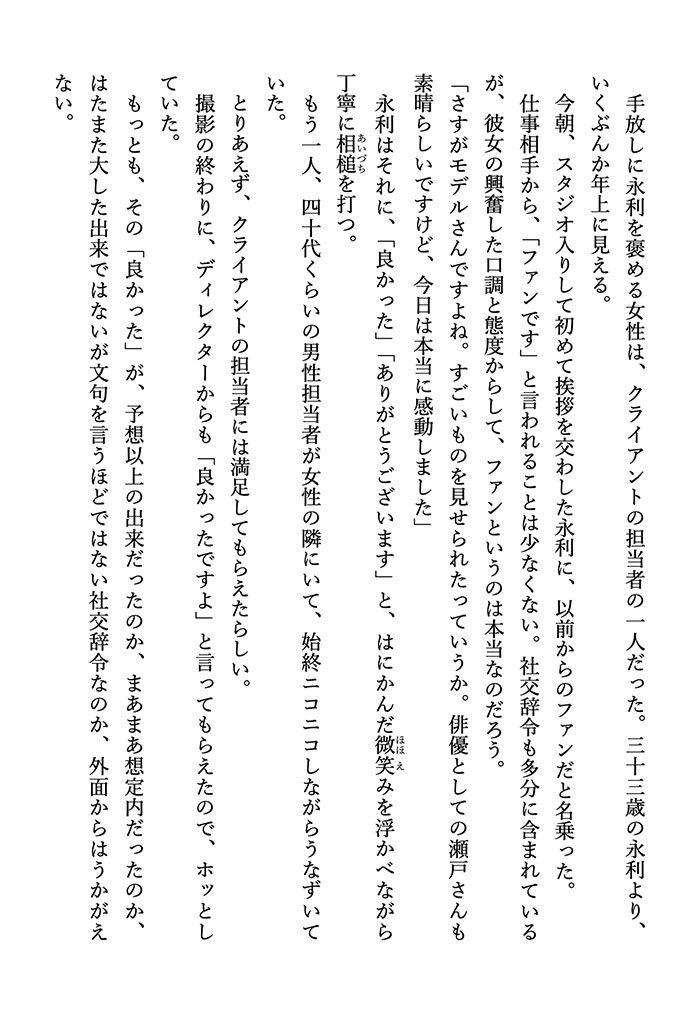 手放しに永利を褒める女性は、クライアントの担当者の一人だった。三十三歳の永利より、
いくぶんか年上に見える。
　今朝、スタジオ入りして初めて挨拶を交わした永利に、以前からのファンだと名乗った。
　仕事相手から、「ファンです」と言われることは少なくない。社交辞令も多分に含まれている
が、彼女の興奮した口調と態度からして、ファンというのは本当なのだろう。
「さすがモデルさんですよね。すごいものを見せられたっていうか。俳優としての瀬戸さんも
素晴らしいですけど、今日は本当に感動しました」
　永利はそれに、「良かった」「ありがとうございます」と、はにかんだ微笑みを浮かべながら
丁寧に相槌を打つ。
　もう一人、四十代くらいの男性担当者が女性の隣にいて、始終ニコニコしながらうなずいて
いた。
　とりあえず、クライアントの担当者には満足してもらえたらしい。
　撮影の終わりに、ディレクターからも「良かったですよ」と言ってもらえたので、ホッとし
ていた。
　もっとも、その「良かった」が、予想以上の出来だったのか、まあまあ想定内だったのか、
はたまた大した出来ではないが文句を言うほどではない社交辞令なのか、外面からはうかがえ
ない。